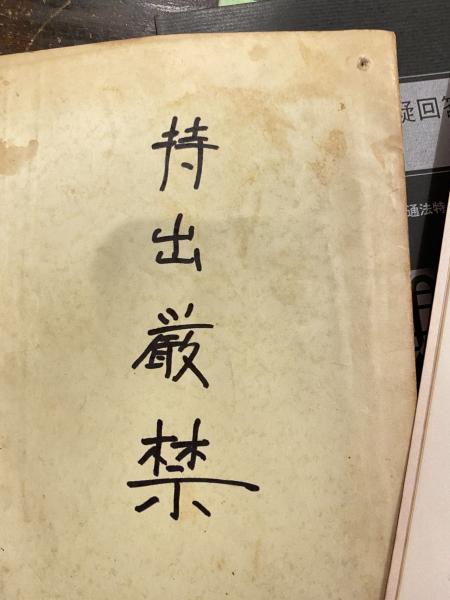 持出厳禁
疑回答
通法特